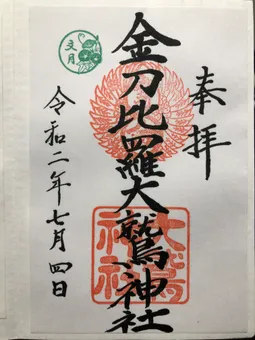 奉拝
金刀比羅大鷲神社
令和二年七月四日
文月